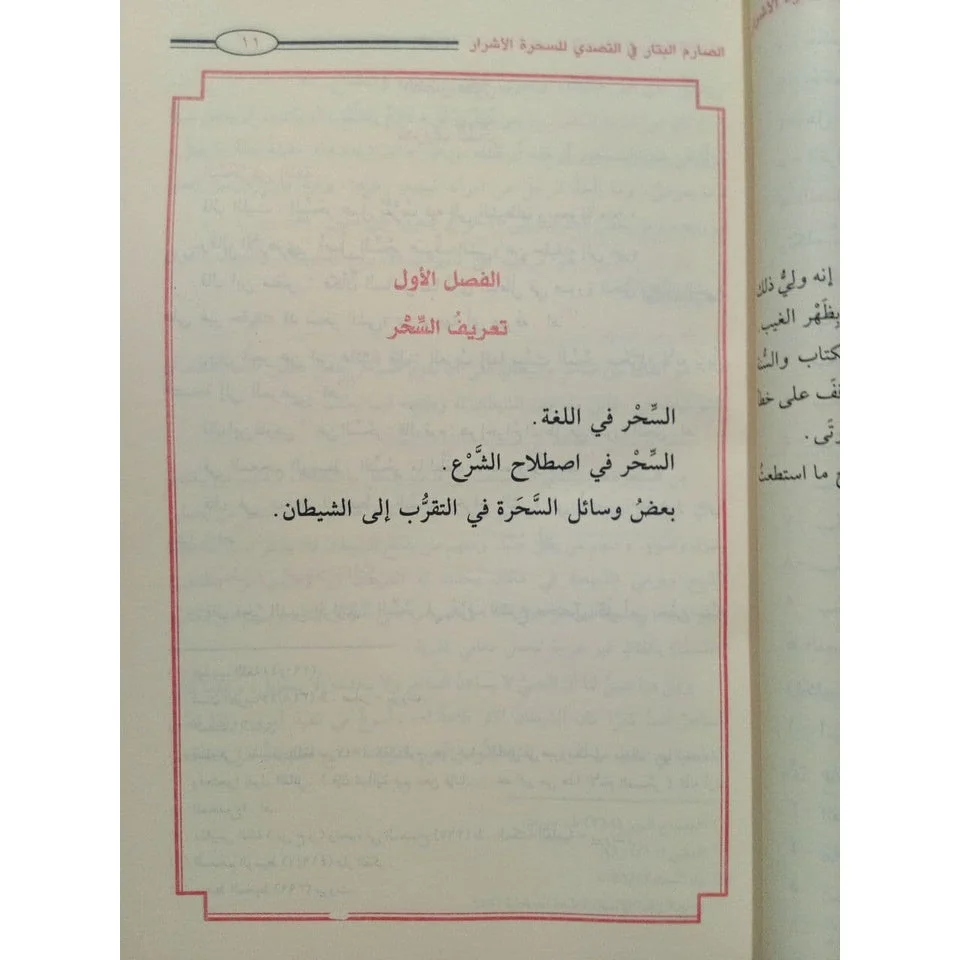 الصارم البتار في التصدي للسحرة الأشرار
١١
الفصل الأول
تعريفُ السِّحْر
السِّحْر في اللغة.
السِّحْر في اصطلاح الشَّرْع.
بعضُ وسائل السَّحَرة في التقرُّب إلى الشيطان.
إنه وليُّ ذلك
بظَهْر الغيب
والسُّنَّ
على خط
ما استطعتُ